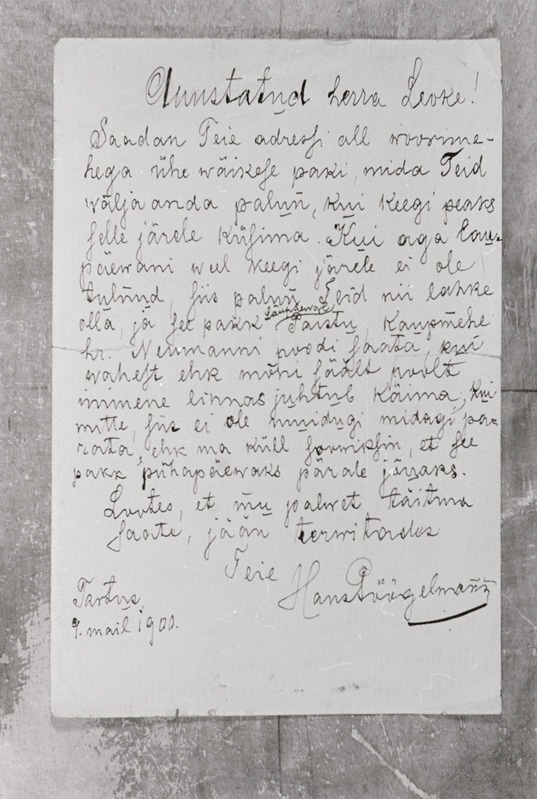 Auustatud herra Levke!
Saadan Teie adressi all woorime-
hega ühe wäikese paki, mida Teid
wälja anda palun, kui keegi peaks
selle järele küsima. Kui aga lau-
päewani weel keegi järele ei ole
tulnud, siis palun Teid nii lahke
olla, ja see pakk laupäewal Paistu kaupmehe
hr. Neumanni poodi saata, kui
wahest ehk mõni säält poolt
inimene linnas juhtub käima; kui
mitte, siis ei ole muidugi midagi pa-
rata, ehk ma küll sooviksin, et see
pakk pühapäewaks pärale jõuaks.
Lootes, et mu palwet täitma
saate, jään terwitades
Teie Hans Pöögelmann
Tartus,
9. mail 1900.